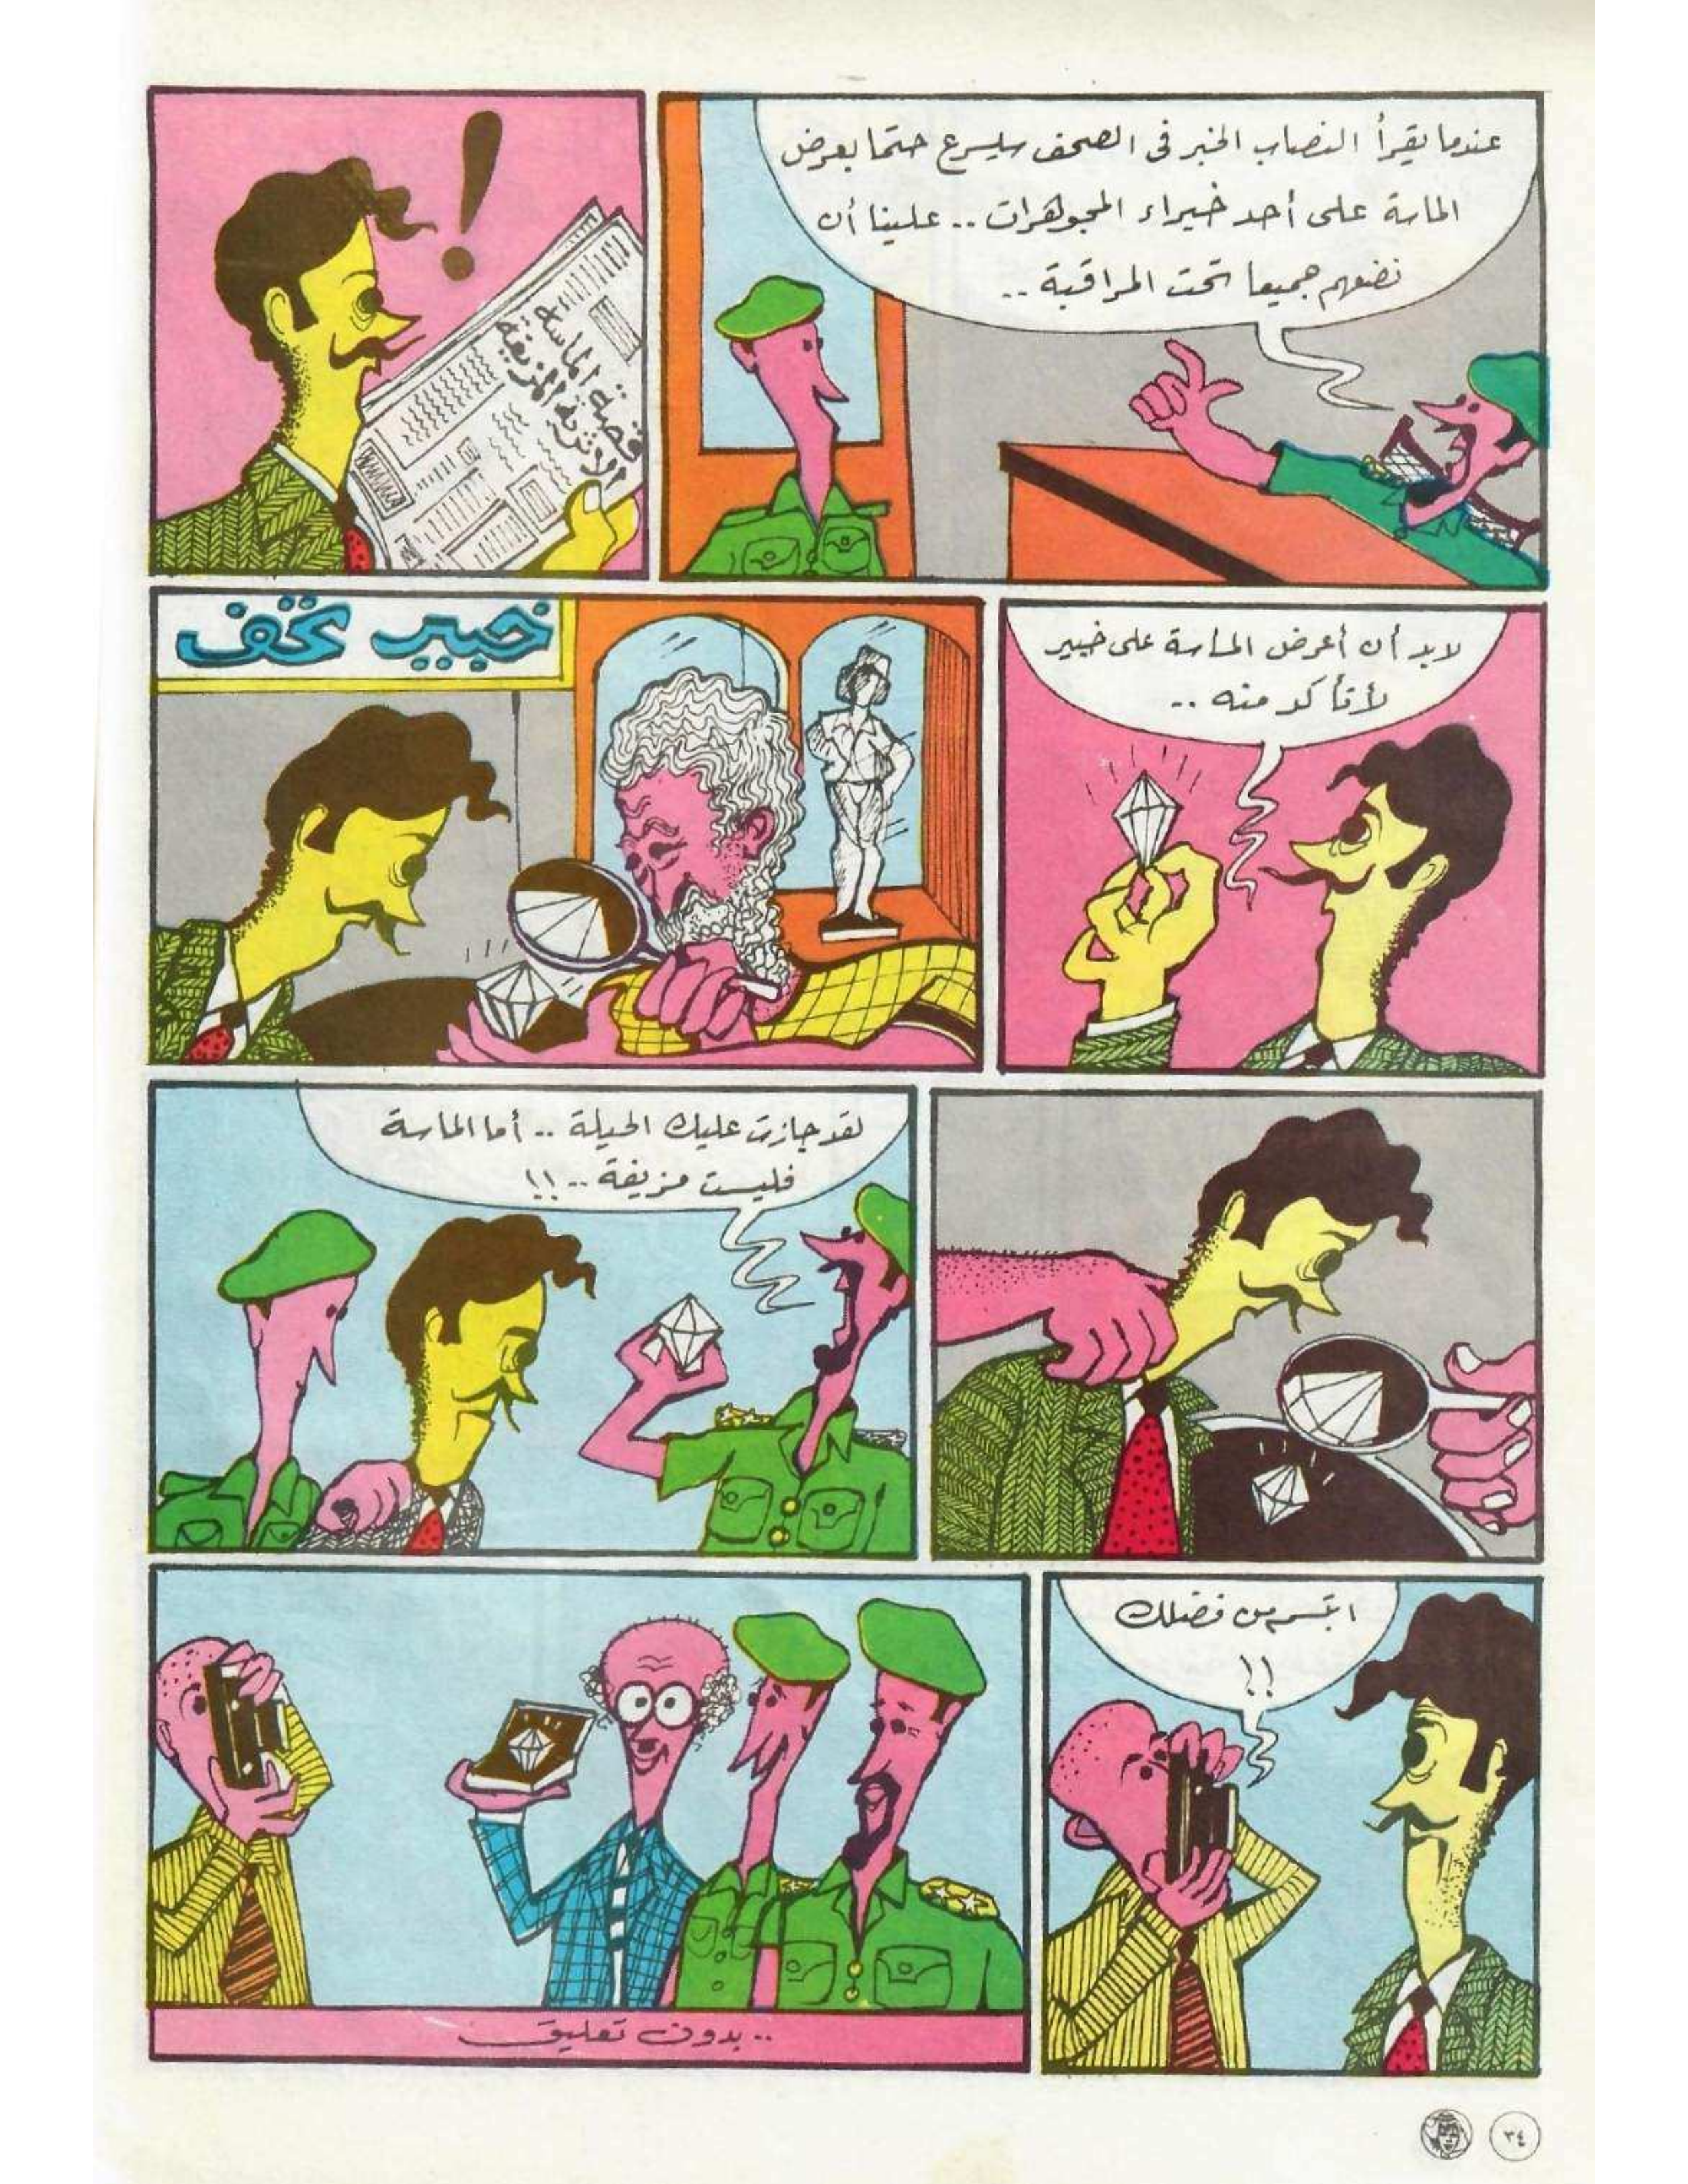 عندما يقرأ النصاب الخبر فى الصحف سيسرع حتما بعرض
الماسة على أحد خبراء المجوهرات .. علينا أن
نضعهم جميعا تحت المراقبة ..
قصة الماسة
الأثرية المزيفة
لابد أن أعرض الماسة على خبير
لأتأكد منه ..
خبير تحف
لقد جازت عليك الحيلة .. أما الماسة
فليست مزيفة .. !!
ابتسم من فضلك
!!
.. بدون تعليق
٣٤